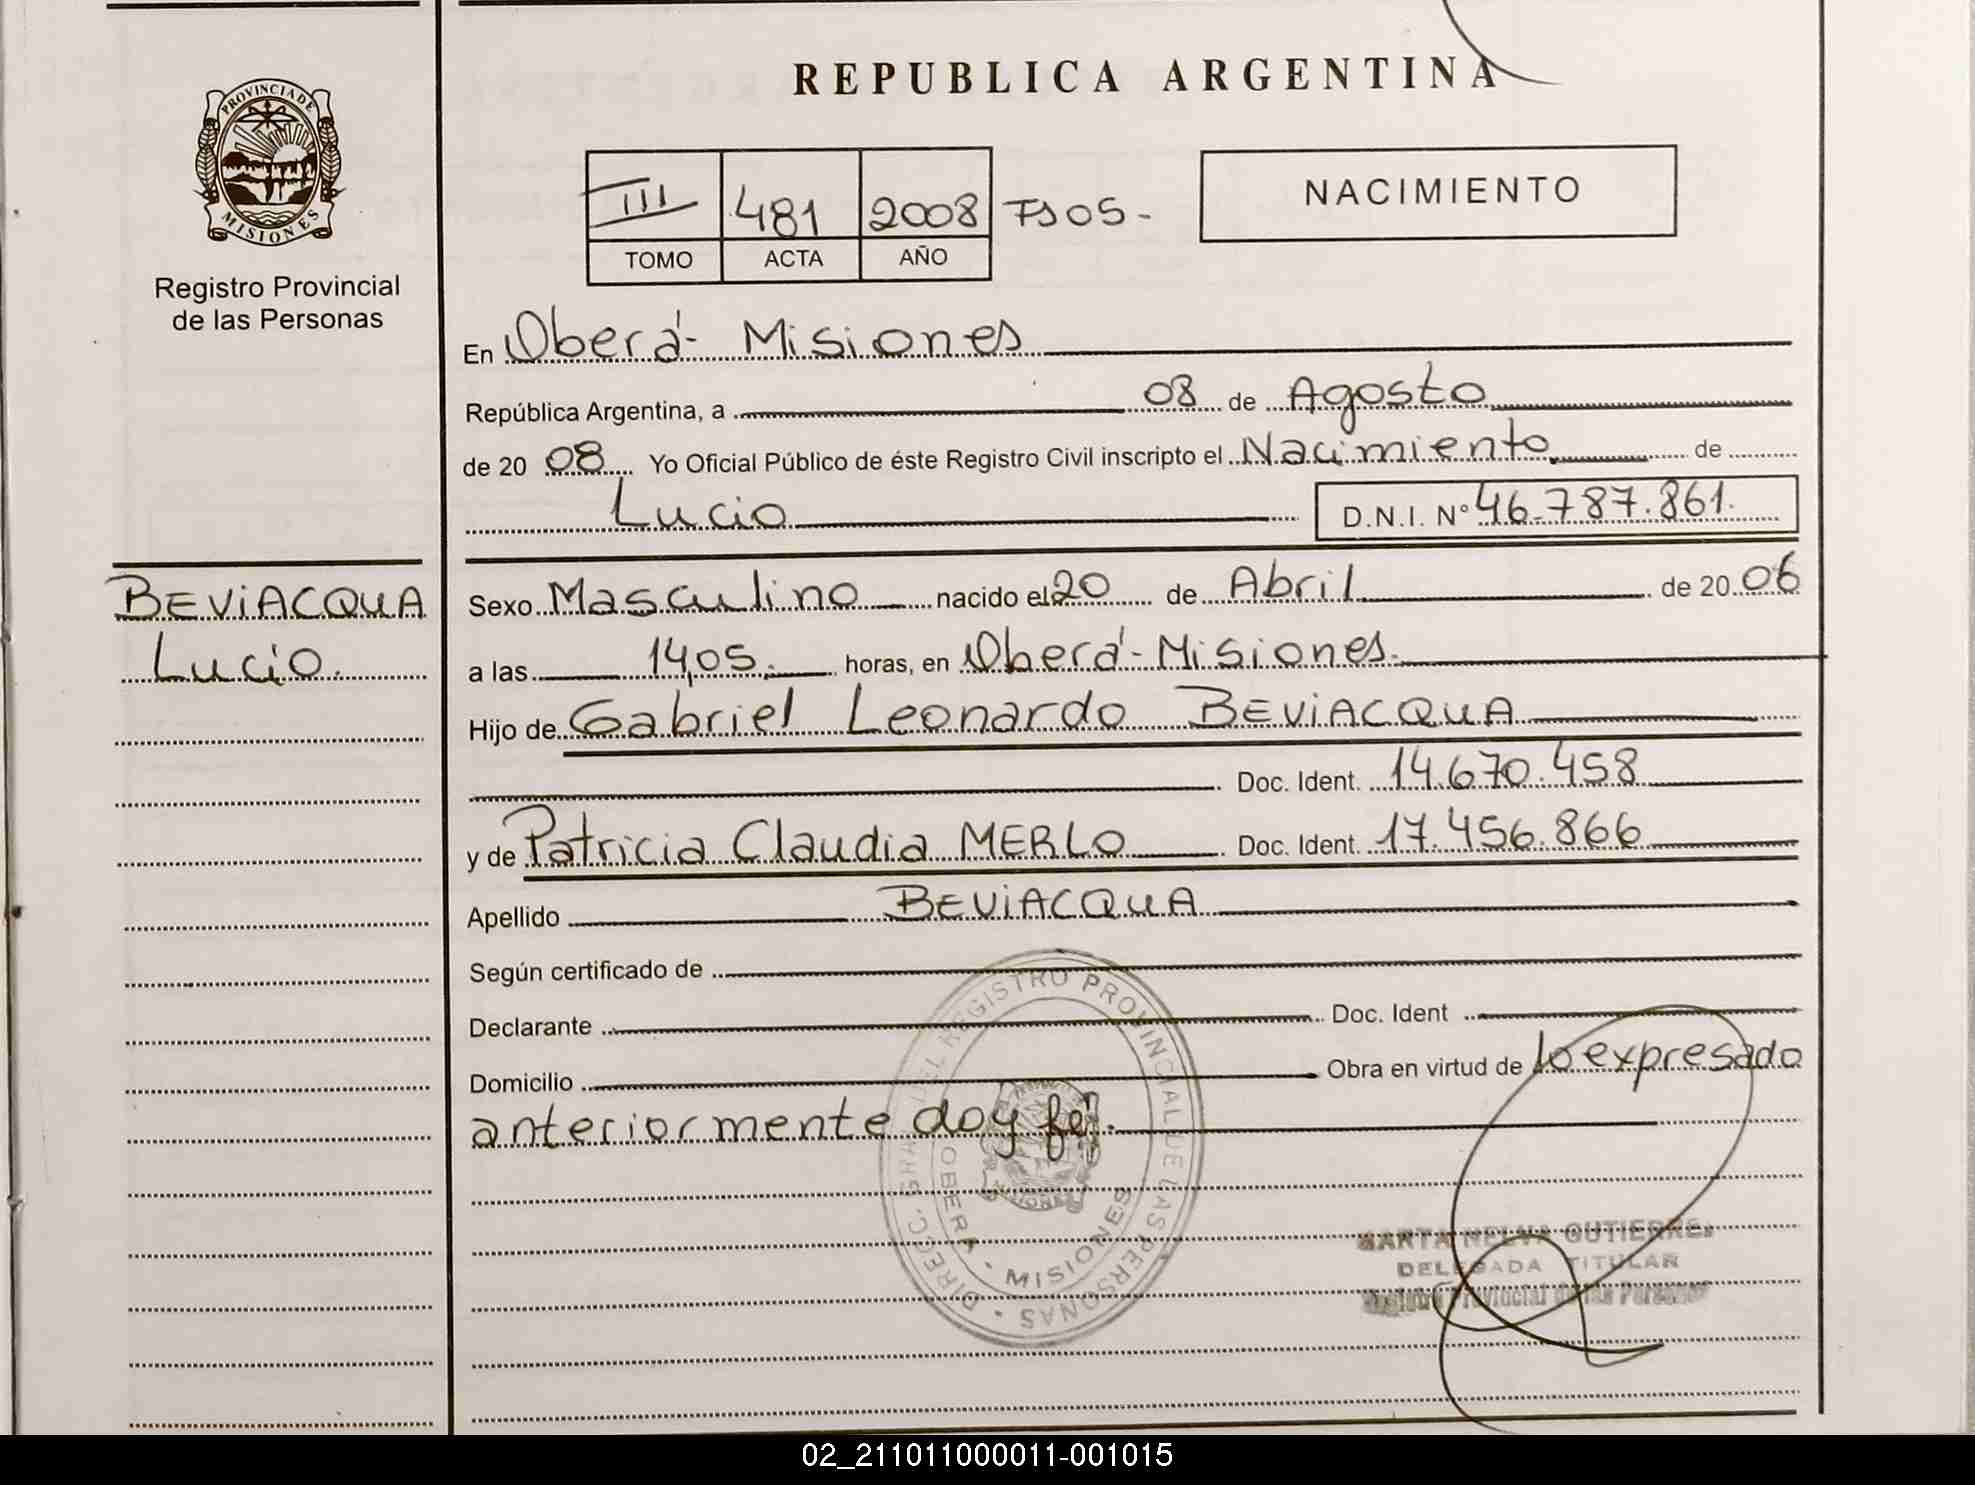 REPUBLICA ARGENTINA
PROVINCIA DE MISIONES
Registro Provincial
de las Personas
III 481 2008 Fs 05-
TOMO ACTA AÑO
NACIMIENTO
En Oberá - Misiones
República Argentina, a 08 de Agosto
de 20 08 Yo Oficial Público de éste Registro Civil inscripto el Nacimiento de
Lucio D.N.I. N° 46.787.861.
BEViACQUA
Lucio.
Sexo Masculino nacido el 20 de Abril de 20 06
a las 14,05. horas, en Oberá - Misiones.
Hijo de Gabriel Leonardo BEViACQUA
Doc. Ident. 14.670.458
y de Patricia Claudia MERLO Doc. Ident. 17.456.866
Apellido BEViACQUA
Según certificado de
Declarante Doc. Ident
Domicilio Obra en virtud de lo expresado
anteriormente doy fé.
REGISTRO PROVINCIAL DE LAS PERSONAS
DIRECC.
OBERA - MISIONES
MARTA NELVA GUTIERREZ
DELEGADA TITULAR
Registro Provincial de las Personas
02_211011000011-001015